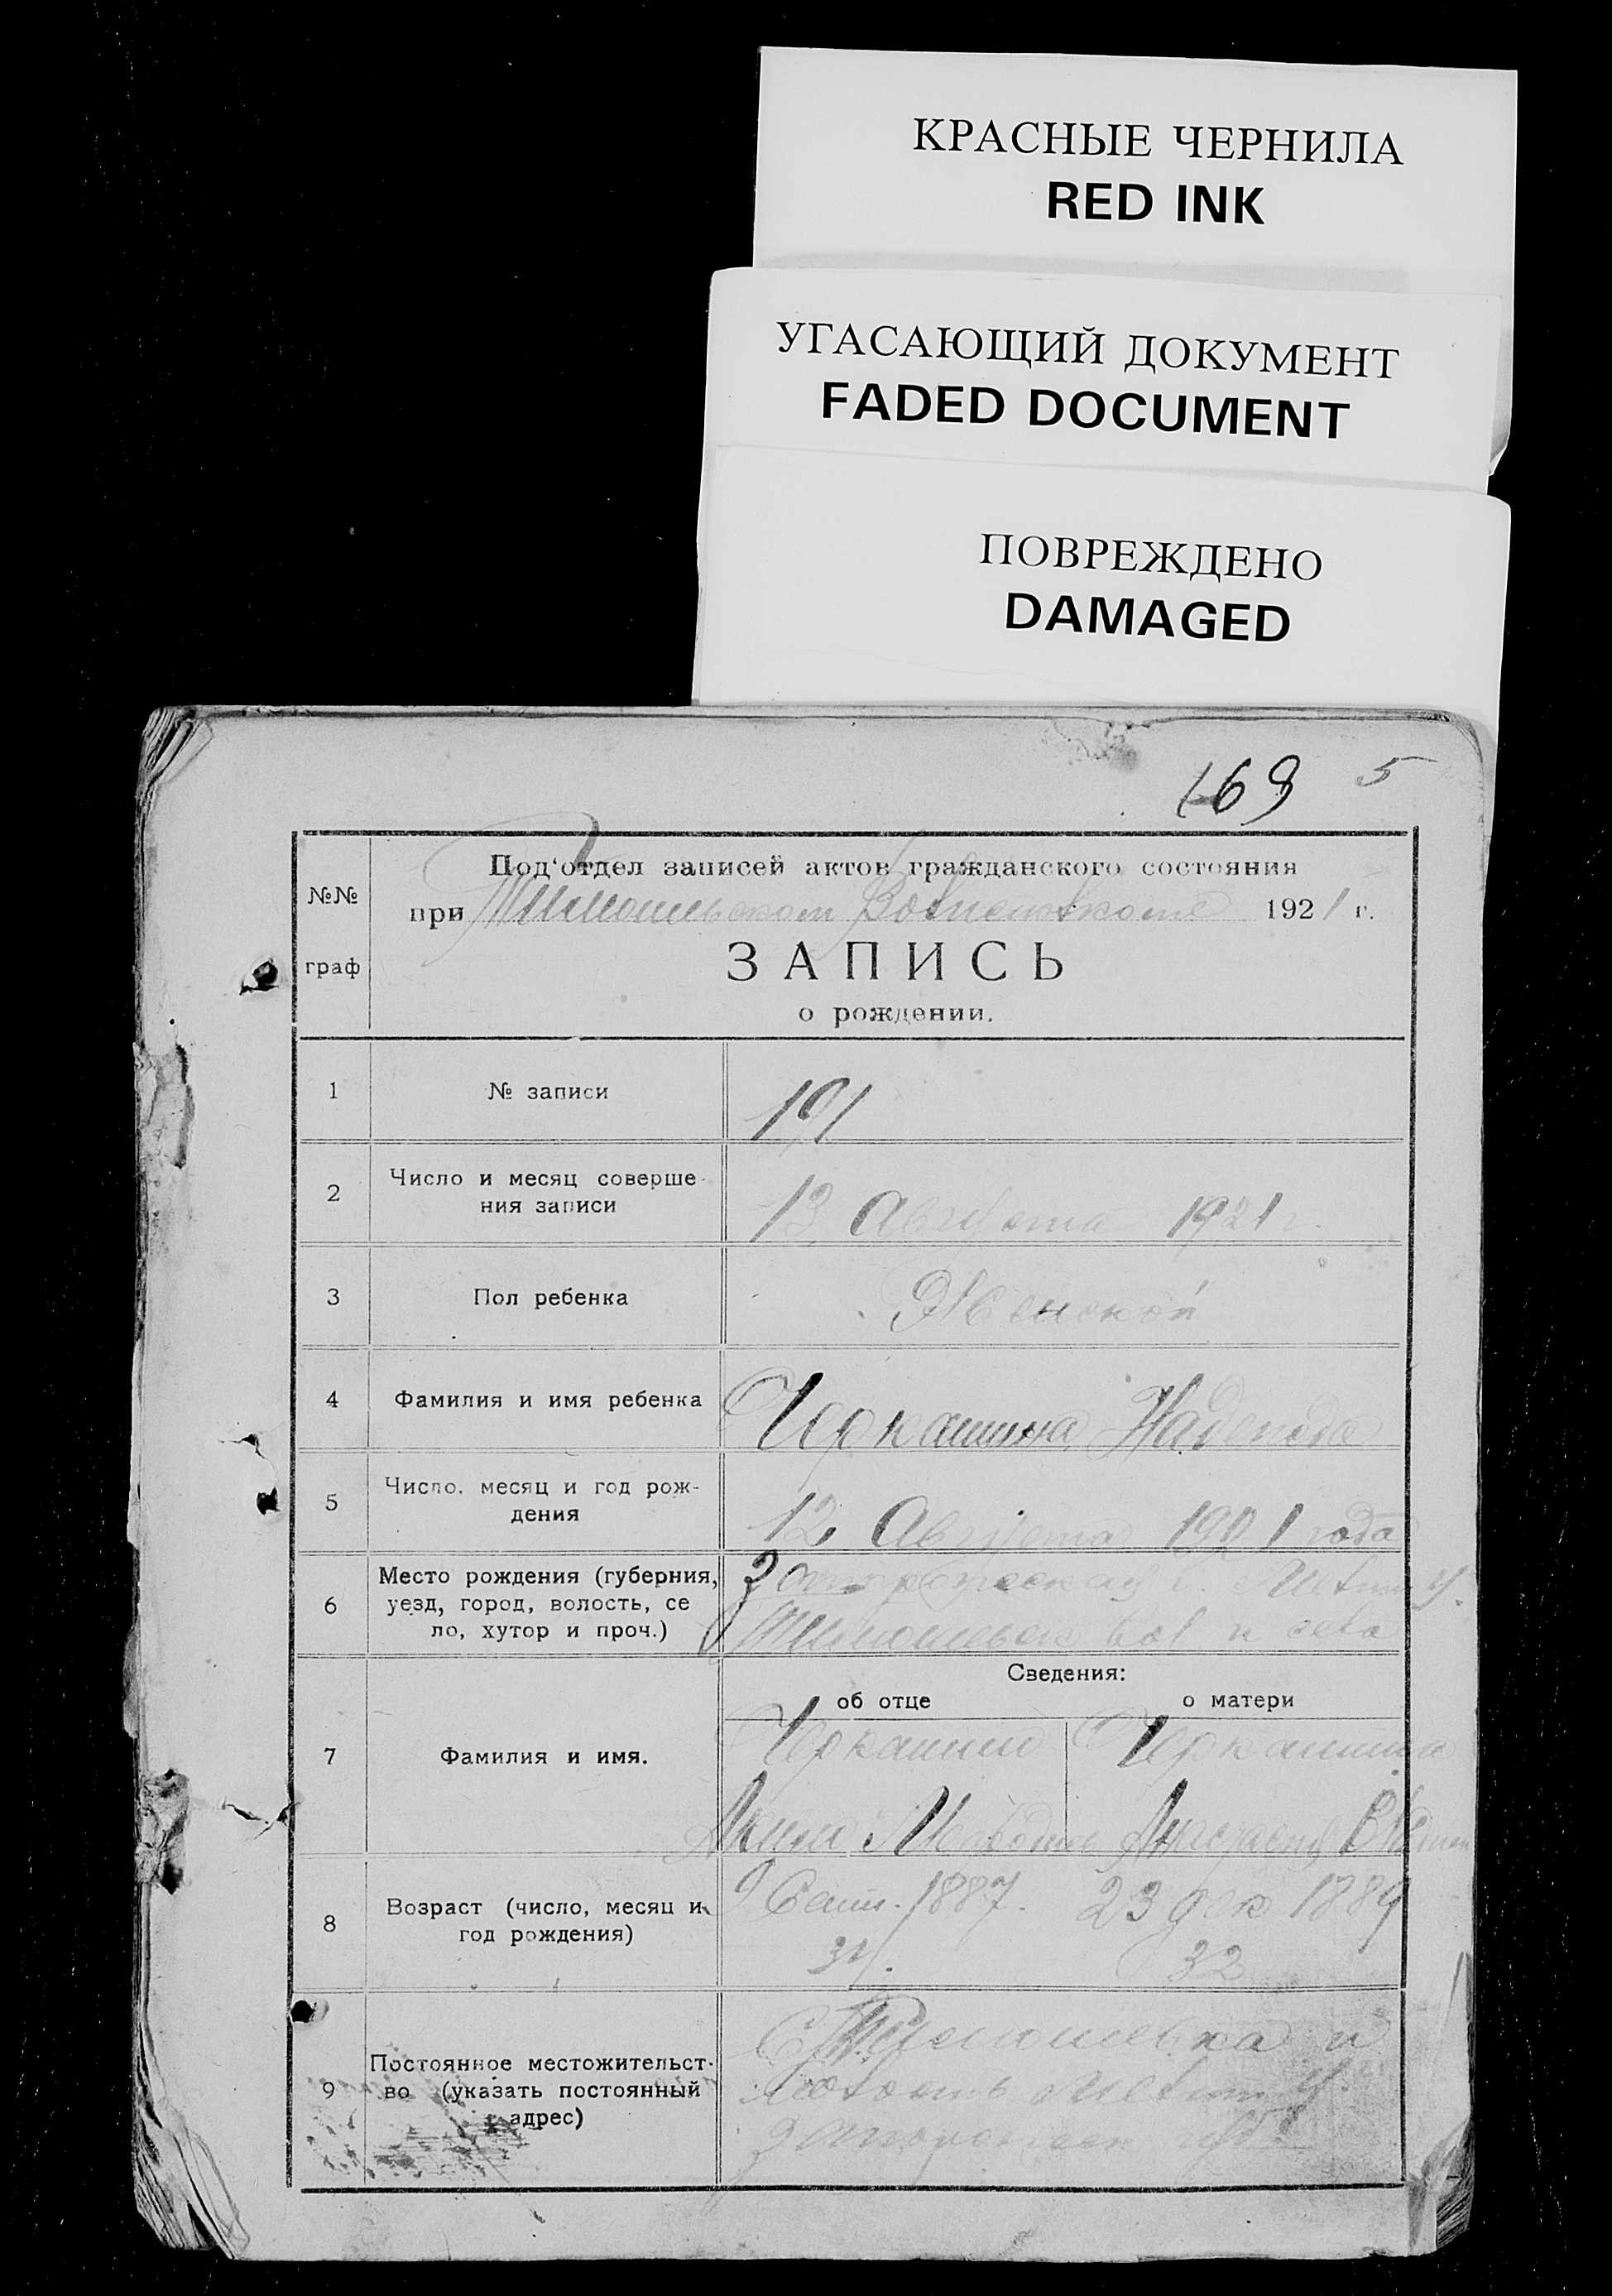 КРАСНЫЕ ЧЕРНИЛА
RED INK
УГАСАЮЩИЙ ДОКУМЕНТ
FADED DOCUMENT
ПОВРЕЖДЕНО
DAMAGED
169 5
№№ граф
Под‘отдел записей актов гражданского состояния
при 1921 г.
ЗАПИСЬ
о рождении.
1 № записи 191
2 Число и месяц соверше-
ния записи 13 Августа 1921 г.
3 Пол ребенка Женской
4 Фамилия и имя ребенка Черкашина Надежда
5 Число, месяц и год рож-
дения 12 Августа 1921 года
6 Место рождения (губерния,
уезд, город, волость, се
ло, хутор и проч.)
Запорожская г. Мелит у.
Тимошевск вол и села
Сведения:
об отце о матери
7 Фамилия и имя.
Черкашин Черкашина
Аким Анастасия
8 Возраст (число, месяц и
год рождения)
9 Сент. 1887. 23 дек 1889
34. 32
9 Постоянное местожительст-
во (указать постоянный
адрес)
С Тимошевка и
волость Мелит у.
Запорожск губ.